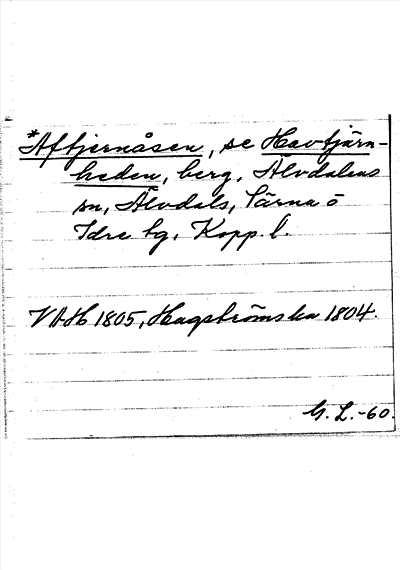 *Aftjernåsen, se Havtjärn-
heden, berg, Älvdalens
sn, Älvdals, Särna ö
Idre tg, Kopp. l.
VAH 1805, Hagströmska 1804.
G. L. -60.